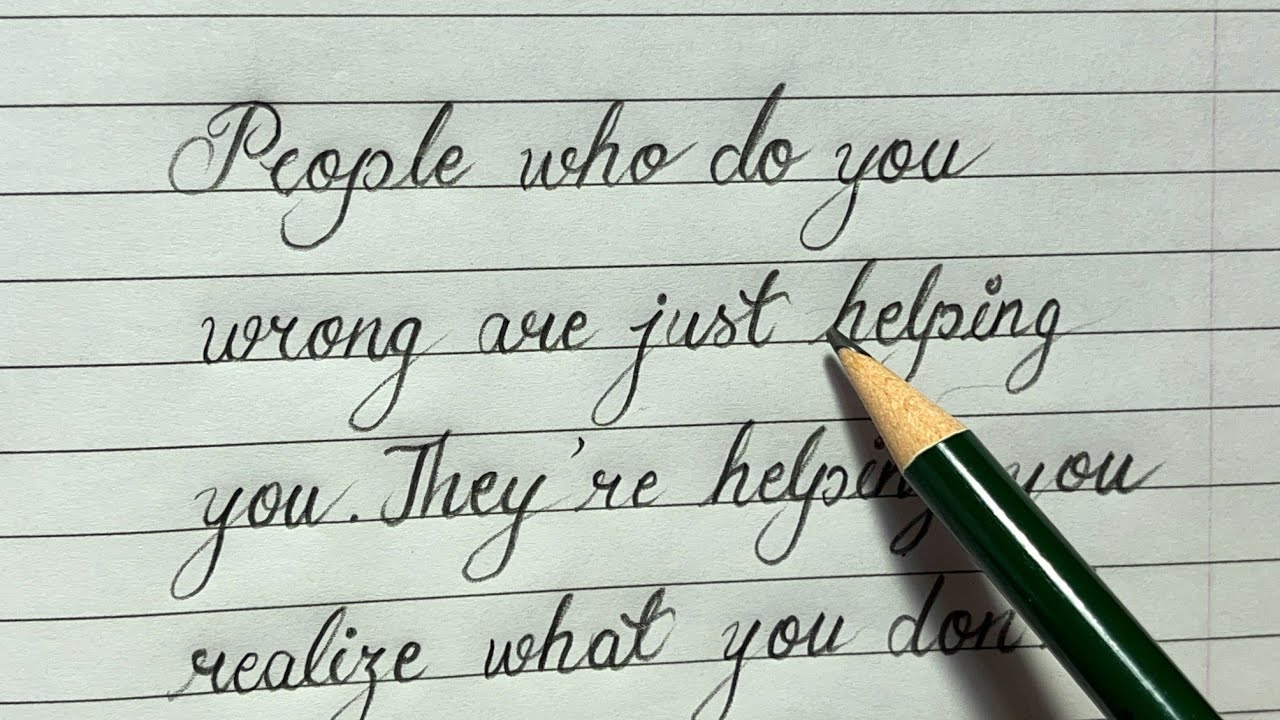 People who do you
wrong are just helping
you. They're helping you
realize what you don